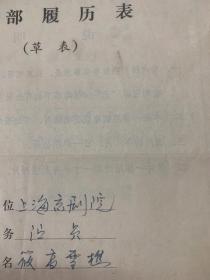 部履历表
(草表)
位上海京剧院
务 演员
名 筱高雪樵